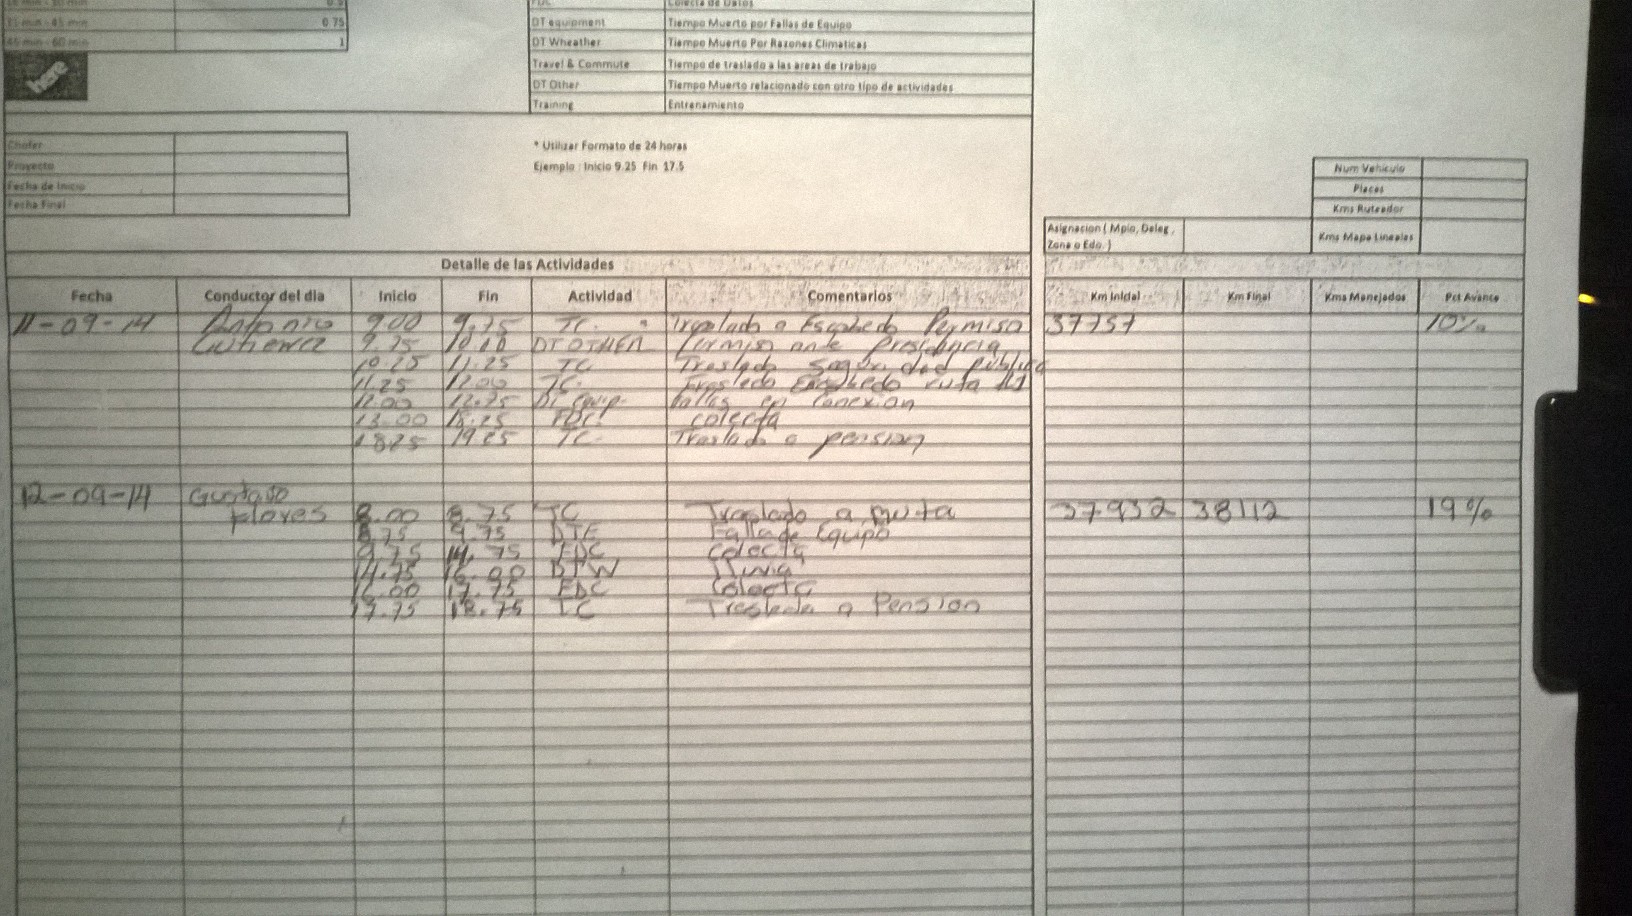 15 min - 45 min 0.75
45 min - 60 min 1
here
FDC Colecta de Datos
DT equipment Tiempo Muerto por Fallas de Equipo
DT Wheather Tiempo Muerto Por Razones Climaticas
Travel & Commute Tiempo de traslado a las areas de trabajo
DT Other Tiempo Muerto relacionado con otro tipo de actividades
Training Entrenamiento
Chofer
Proyecto
Fecha de Inicio
Fecha Final
* Utilizar Formato de 24 horas
Ejemplo : Inicio 9.25 Fin 17.5
Num Vehiculo
Placas
Kms Ruteador
Kms Mapa Lineales
Asignacion ( Mpio, Deleg ,
Zona o Edo. )
Detalle de las Actividades
Fecha Conductor del dia Inicio Fin Actividad Comentarios Km Inicial Km Final Kms Manejados Pct Avance
11-09-14 Antonio 9.00 9.75 TC. Traslado a Escobedo Permiso 37757 10%
9.75 DT OTHER ante Presidencia
10.25 11.25 TC Traslado pública
11.25 12.00 TC. Traslado Escobedo ruta
12.00 12.75 DT Equip. fallas en Conexion
13.00 18.25 FDC. colecta
18.25 19.25 TC. Traslado a pension
12-09-14 Gustavo
Flores 8.00 8.75 TC Traslado a ruta 37932 38112 19%
8.75 9.75 DTE Falla de Equipo
9.75 14.75 FDC Colecta
14.75 16.00 DTW lluvia
16.00 17.75 FDC Colecta
17.75 18.75 TC Traslado a Pension